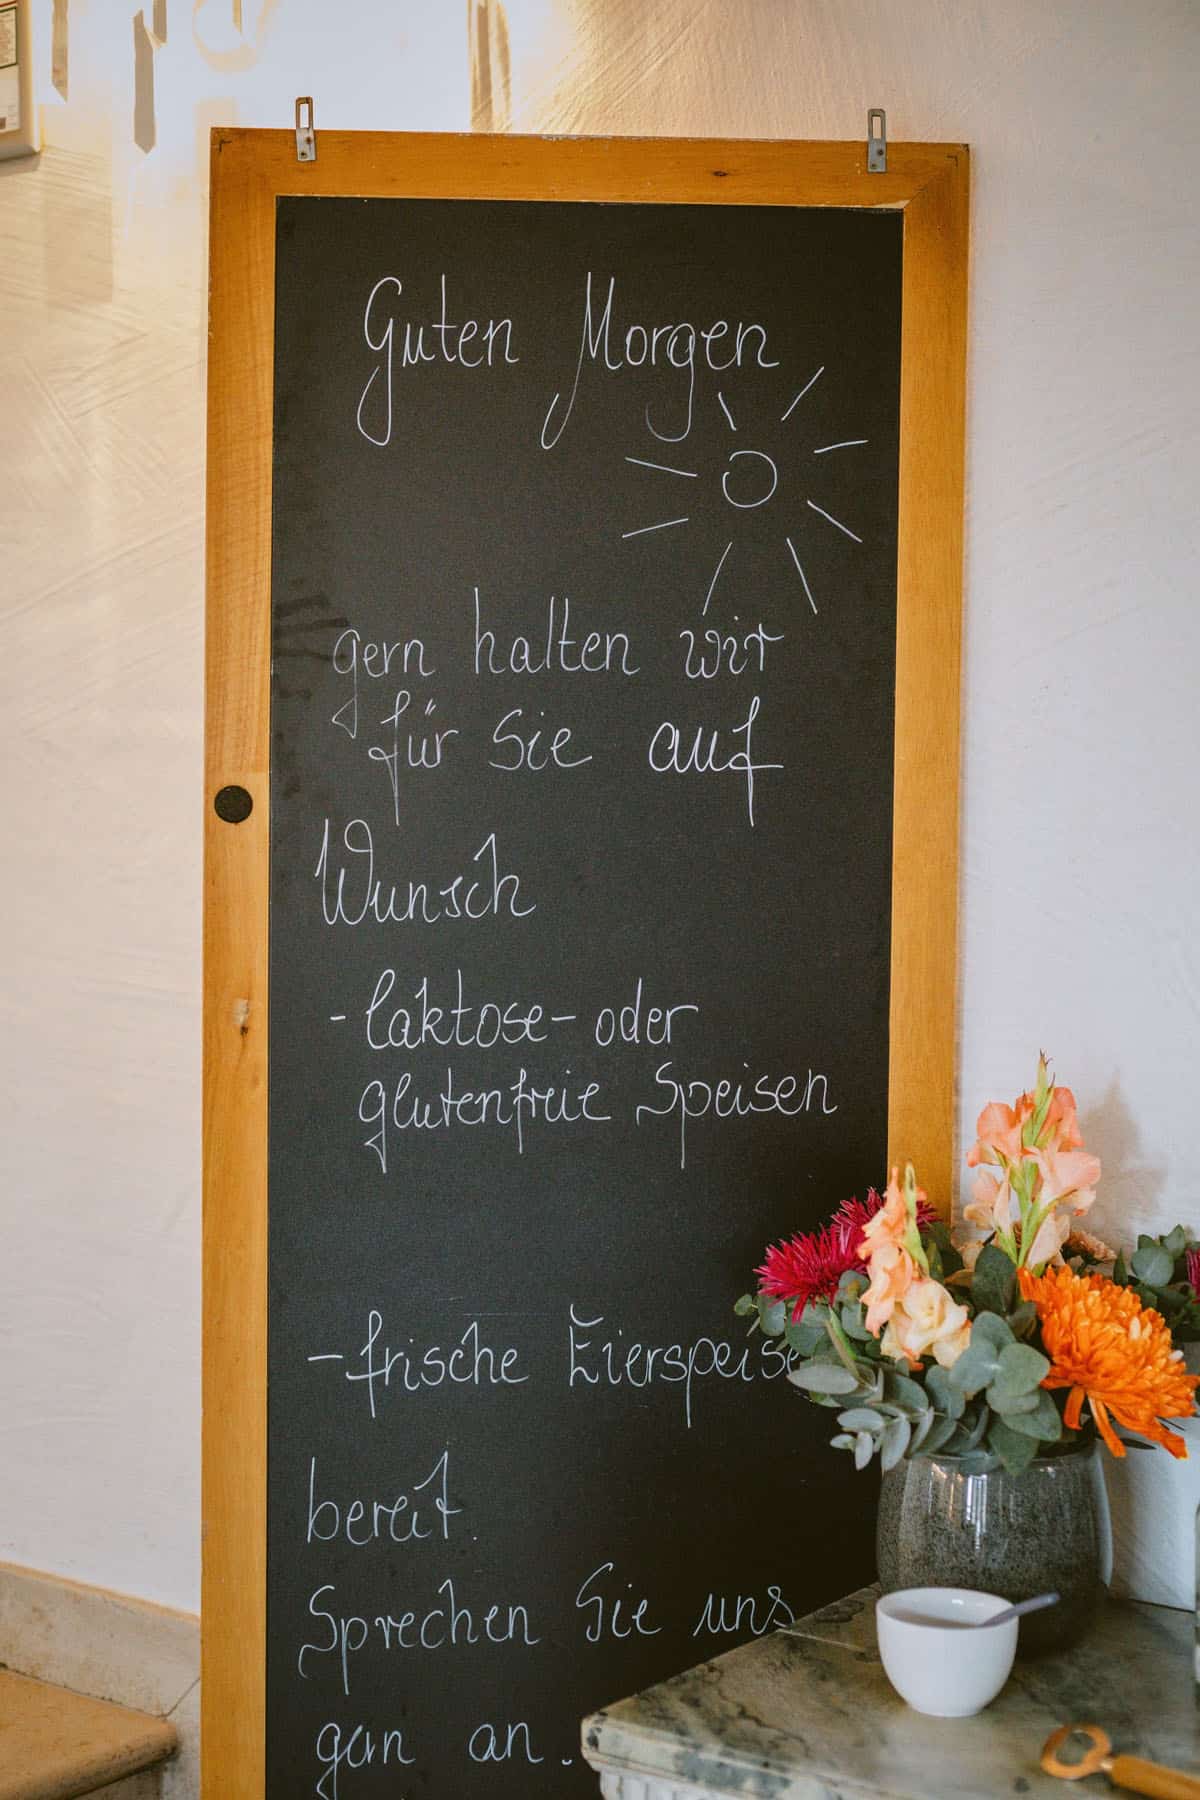 Guten Morgen
gern halten wir
für Sie auf
Wunsch
- laktose- oder
glutenfreie Speisen
- frische Eierspeise
bereit.
Sprechen Sie uns
gern an.